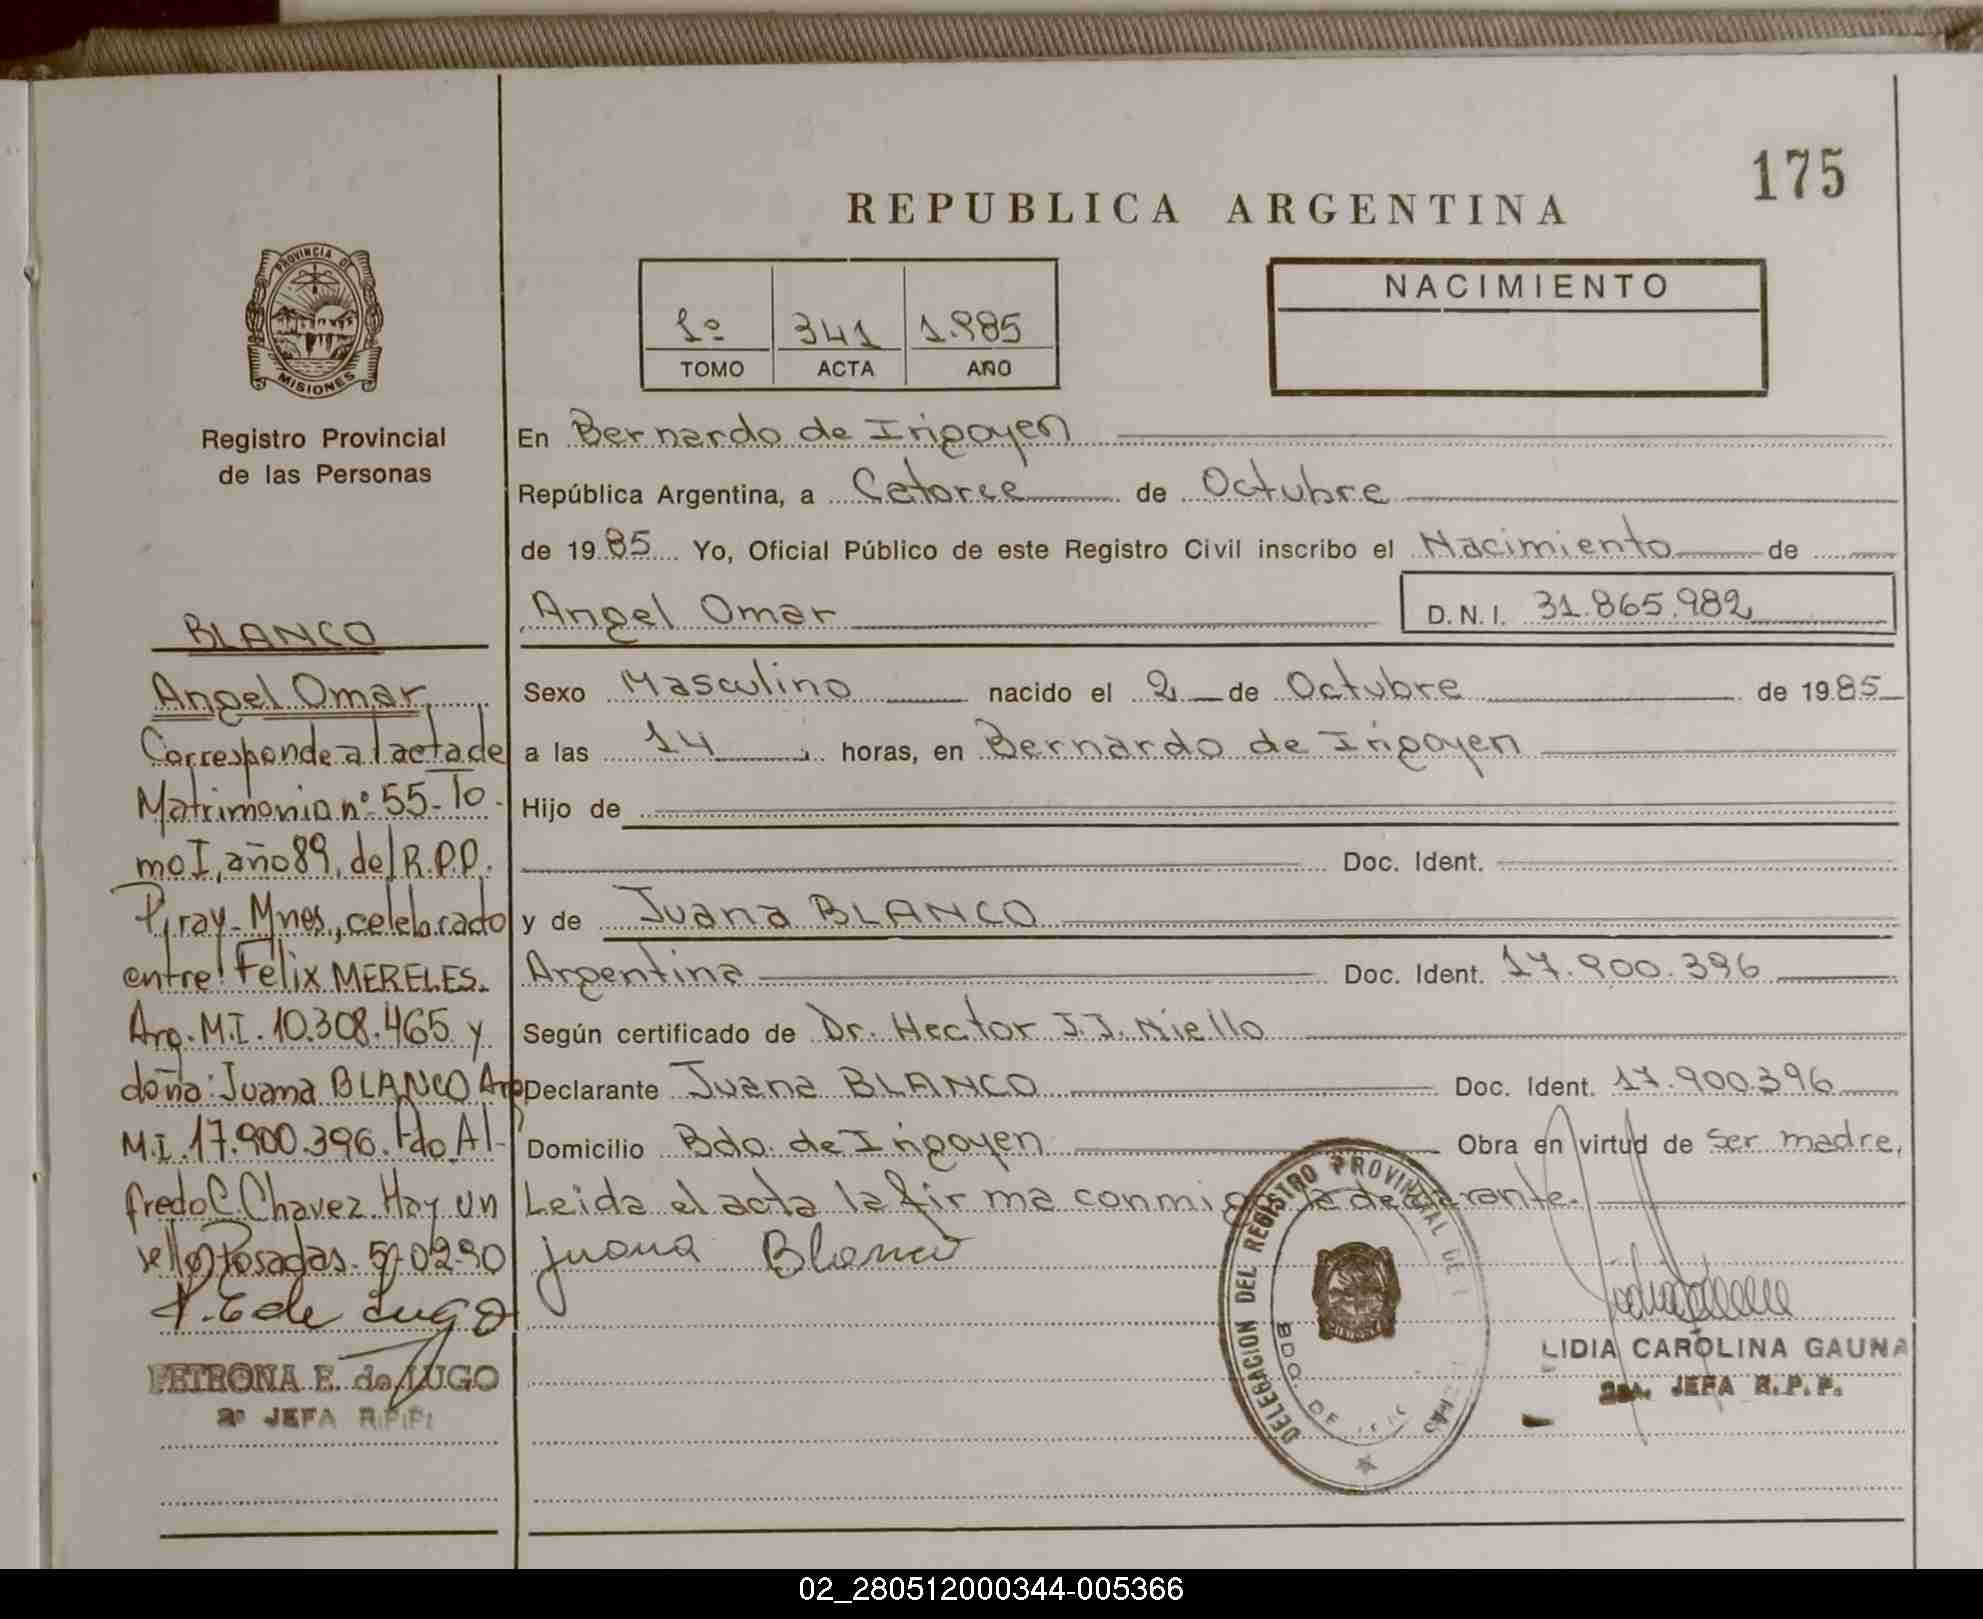 175
REPUBLICA ARGENTINA
PROVINCIA DE
MISIONES
Registro Provincial
de las Personas
1º 341 1.985
TOMO ACTA AÑO
NACIMIENTO
En Bernardo de Irigoyen
República Argentina, a Catorce de Octubre
de 1985 Yo, Oficial Público de este Registro Civil inscribo el Nacimiento de
Angel Omar D.N.I. 31.865.982
Sexo Masculino nacido el 2 de Octubre de 1985
a las 14 horas, en Bernardo de Irigoyen
Hijo de
Doc. Ident.
y de Juana BLANCO
Argentina Doc. Ident. 17.900.396
Según certificado de Dr. Hector J.J. Niello
Declarante Juana BLANCO Doc. Ident. 17.900.396
Domicilio Bdo. de Irigoyen Obra en virtud de ser madre,
Leida el acta la firma conmigo la declarante.
Juana Blanco
DELEGACION DEL REGISTRO PROVINCIAL DE
BDO. DE
LIDIA CAROLINA GAUNA
2da. JEFA R.P.P.
BLANCO
Angel Omar
Corresponde al acta de
Matrimonio nº 55-To-
mo I, año 89, del R.P.P.
Piray-Mnes, celebrado
entre: Felix MERELES.
Arg. M.I. 10.308.465 y
doña: Juana BLANCO Arg
M.I. 17.900.396. Fdo. Al-
fredo C. Chavez. Hay un
sello, Posadas. 5-02-90
P. E de Lugo
PETRONA E. de LUGO
2º JEFA R.P.P.
02_280512000344-005366